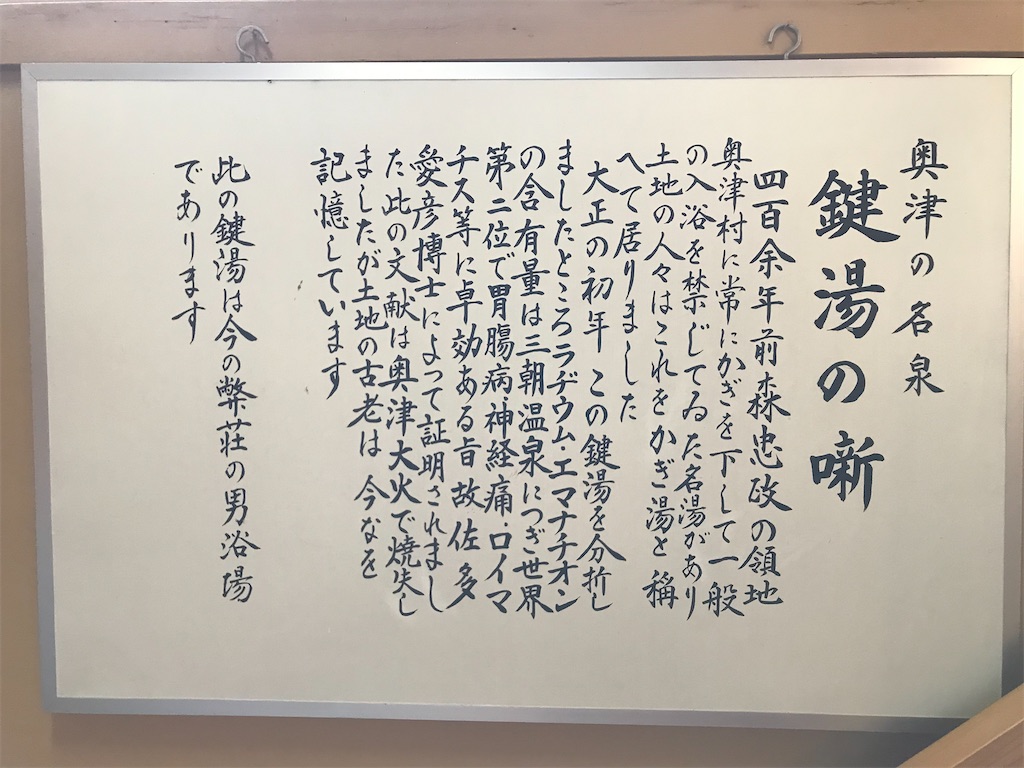 奥津の名泉
鍵湯の噺
四百余年前森忠政の領地
奥津村に常にかぎを下して一般
の入浴を禁じてゐた名湯があり
土地の人々はこれをかぎ湯と称
へて居りました
大正の初年この鍵湯を分折し
ましたところラヂウム・エマナチオン
の含有量は三朝温泉につぎ世界
第二位で胃腸病・神経痛・ロイマ
チス等に卓効ある旨故佐多
愛彦博士によって証明されまし
た此の文献は奥津大火で焼失し
ましたが土地の古老は今なを
記憶しています
此の鍵湯は今の弊荘の男浴場
であります